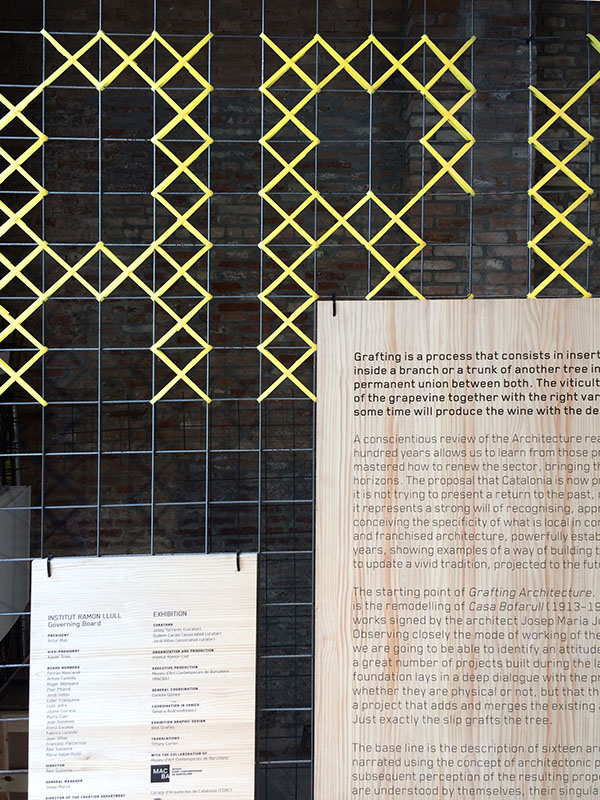 A
R
Grafting is a process that consists in insert
inside a branch or a trunk of another tree in
permanent union between both. The viticult
of the grapevine together with the right var
some time will produce the wine with the de
A conscientious review of the Architecture rea
hundred years allows us to learn from those pr
mastered how to renew the sector, bringing th
horizons. The proposal that Catalonia is now pr
it is not trying to present a return to the past,
it represents a strong will of recognising, appr
conceiving the specificity of what is local in con
and franchised architecture, powerfully estab
years, showing examples of a way of building t
to update a vivid tradition, projected to the futu
The starting point of Grafting Architecture.
is the remodelling of Casa Bofarull (1913-19
works signed by the architect Josep Maria Ju
Observing closely the mode of working of the
we are going to be able to identify an attitude
a great number of projects built during the la
foundation lays in a deep dialogue with the p
whether they are physical or not, but that th
a project that adds and merges the existing
Just exactly the slip grafts the tree.
The base line is the description of sixteen ar
narrated using the concept of architectonic p
subsequent perception of the resulting propo
are understood by themselves, their singula
INSTITUT RAMON LLULL
Governing Board
PRESIDENT
Artur Mas
VICE-PRESIDENT
Xavier Trias
BOARD MEMBERS
Ferran Mascarell
Antoni Castellà
Roger Albinyana
Pilar Pifarré
Jordi Sellas
Ester Franquesa
Lluís Juncà
Jaume Ciurana
Joan Subirats
Joan Viñas
Francesc Fontbona
Àlex Susanna
DIRECTOR
Àlex Susanna
GENERAL MANAGER
Josep Marcé
DIRECTOR OF THE CREATION DEPARTMENT
EXHIBITION
CURATORS
Josep Torrents (curator)
Guillem Carabí (associated curator)
Jordi Ribas (associated curator)
ORGANIZATION AND PRODUCTION
Institut Ramon Llull
EXECUTIVE PRODUCTION
Museu d'Art Contemporani de Barcelona
(MACBA)
GENERAL COORDINATION
Carlota Gómez
COORDINATION IN VENICE
EXHIBITION GRAPHIC DESIGN
TRANSLATIONS
Tiffany Carter
WITH THE COLLABORATION OF
Museu d'Art Contemporani de Barcelona
MAC
BA
Col·legi d'Arquitectes de Catalunya (COAC)